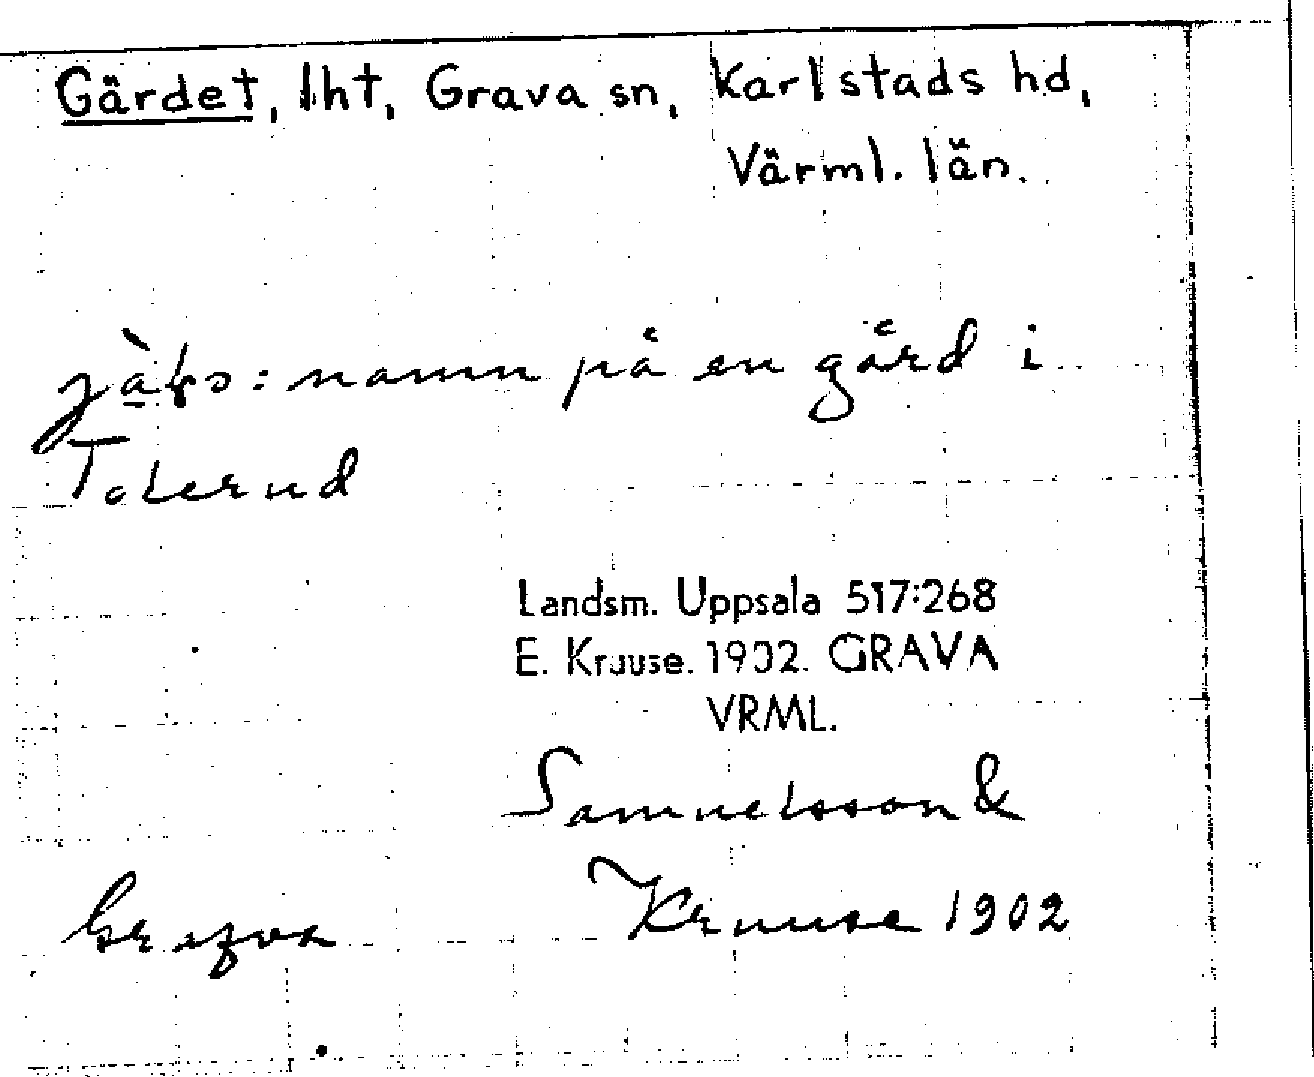 Gärdet, lht, Grava sn, Karlstads hd,
Värml. län.
namn på en gård i
Tolerud
Landsm. Uppsala 517:268
E. Krause. 1902. GRAVA
VRML.
Samuelsson &
Grafva Krause 1902